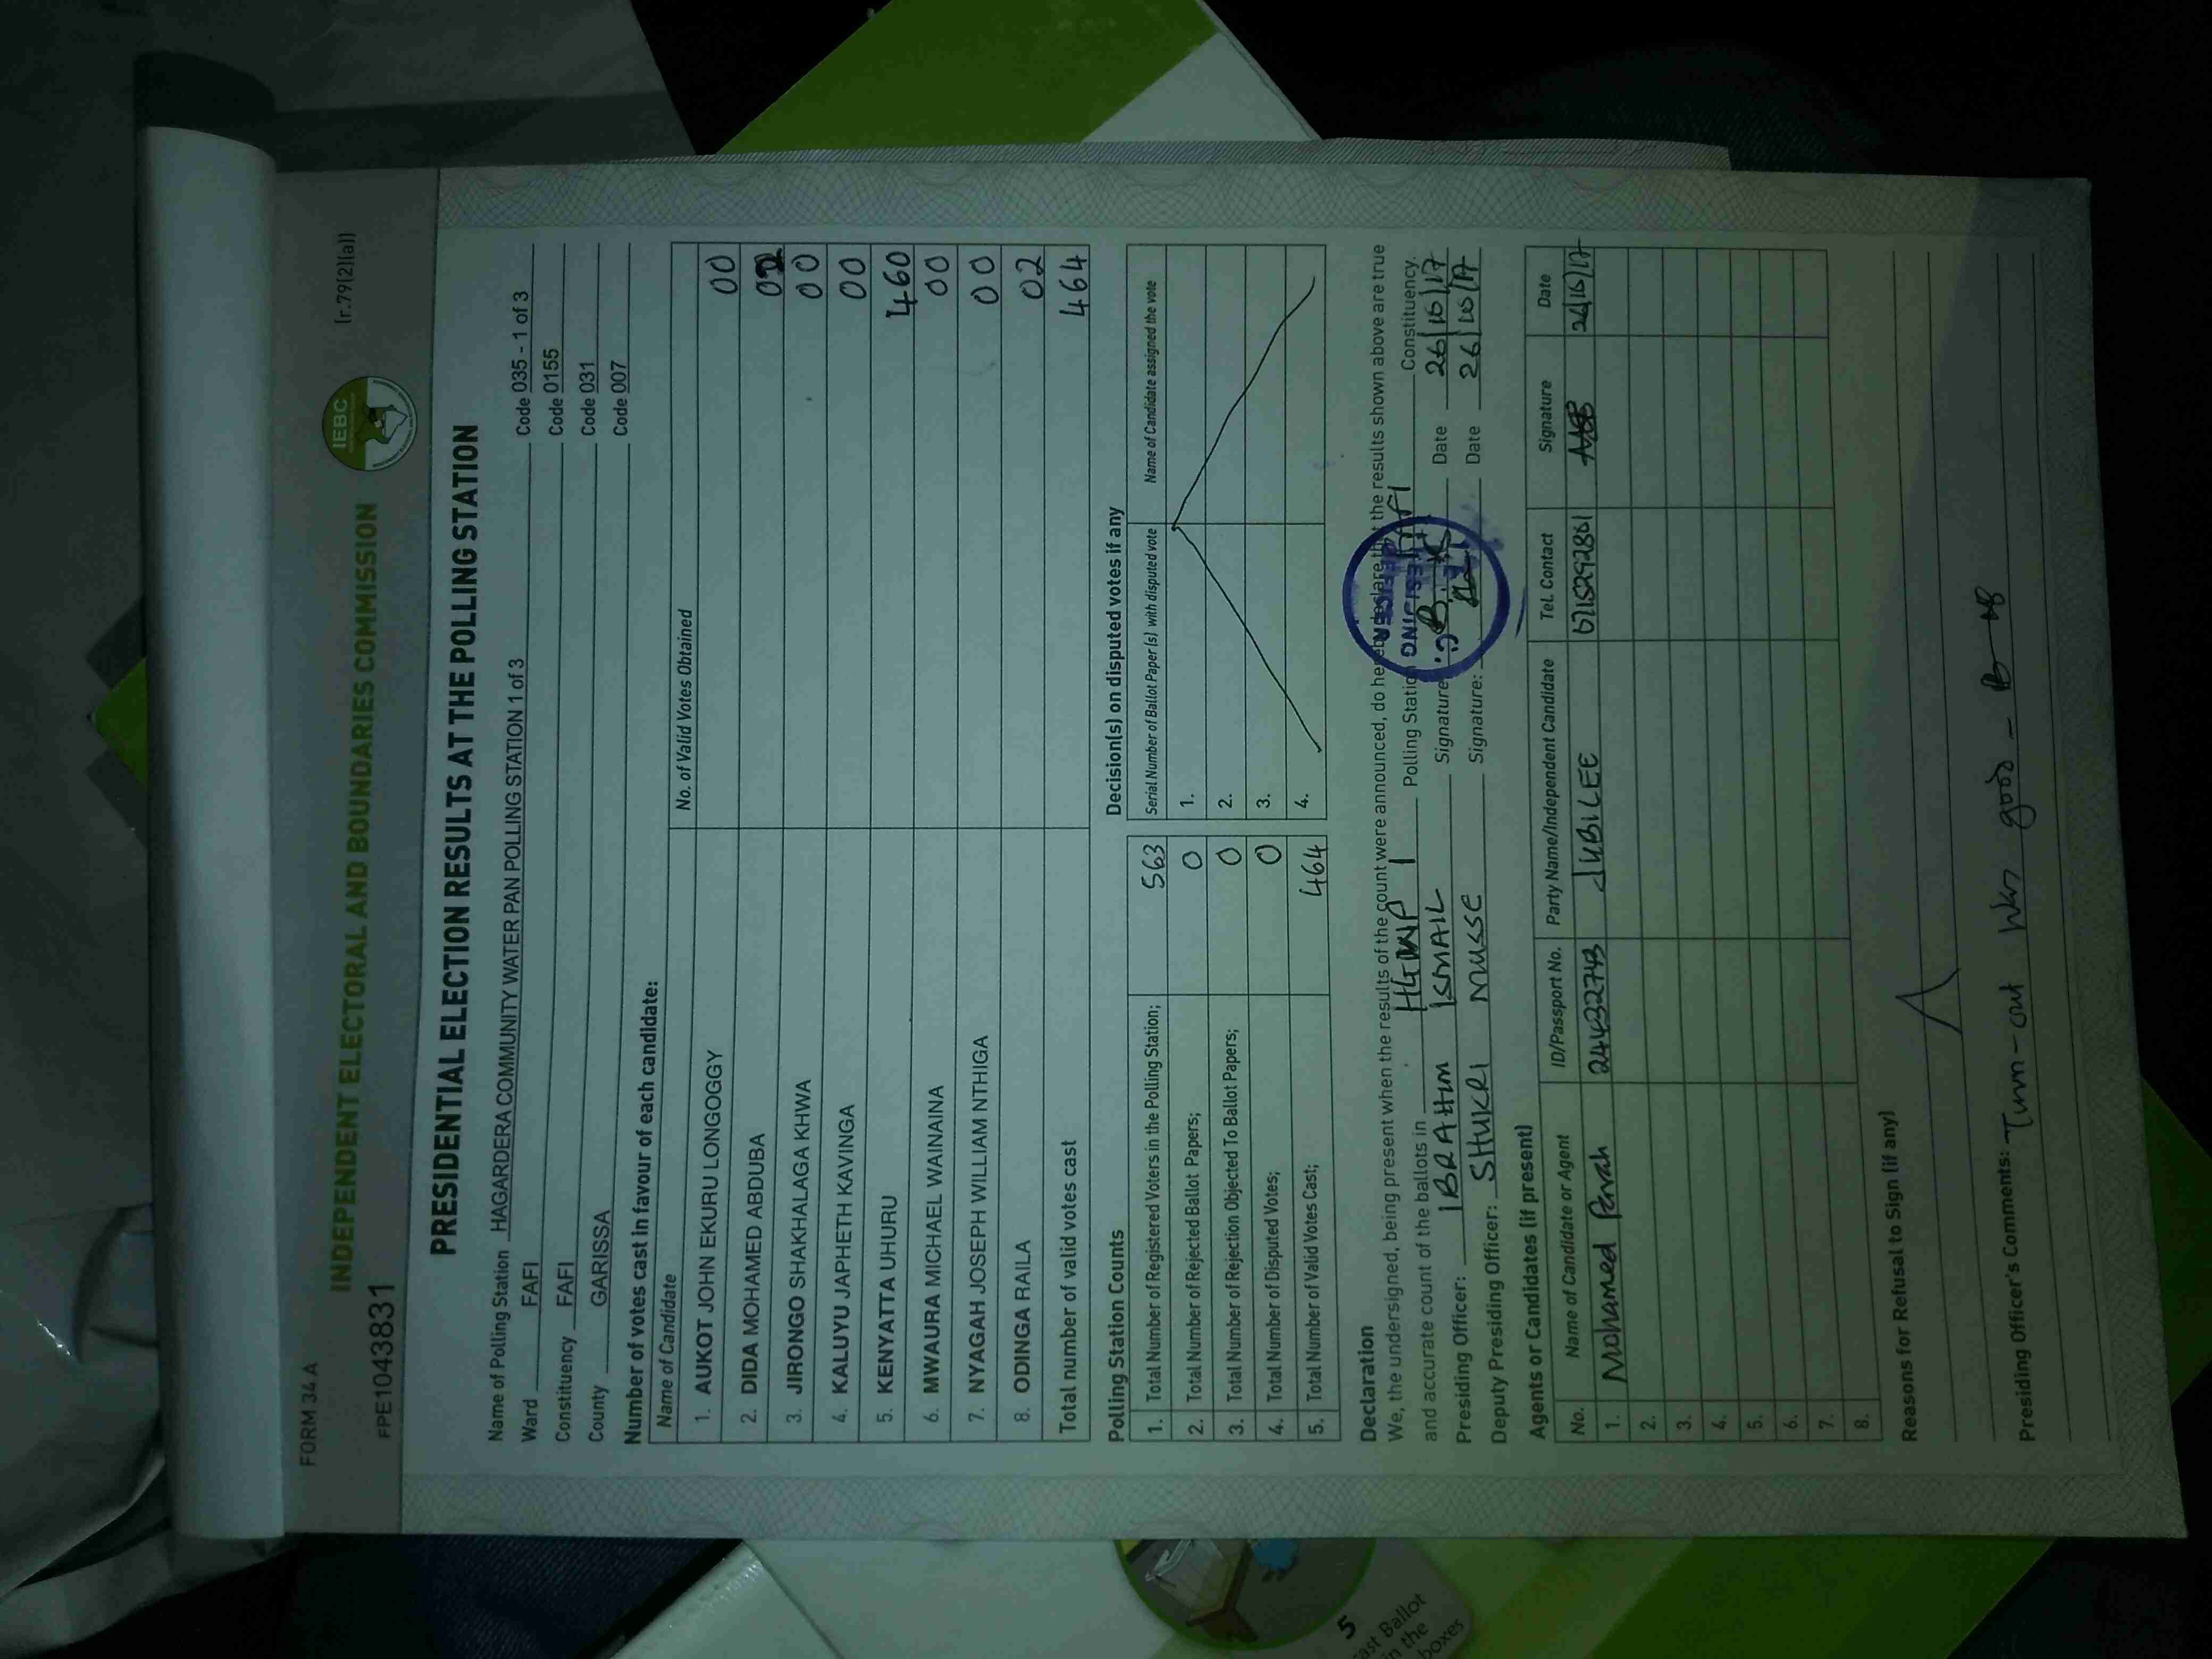 FORM 34 A
(r.79(2)(a))
INDEPENDENT ELECTORAL AND BOUNDARIES COMMISSION
IEBC
FPE1043831
PRESIDENTIAL ELECTION RESULTS AT THE POLLING STATION
Name of Polling Station HAGARDERA COMMUNITY WATER PAN POLLING STATION 1 of 3 Code 035 - 1 of 3
Ward FAFI Code 0155
Constituency FAFI Code 031
County GARISSA Code 007
Number of votes cast in favour of each candidate:
Name of Candidate No. of Valid Votes Obtained
1. AUKOT JOHN EKURU LONGOGGY 00
2. DIDA MOHAMED ABDUBA 02
3. JIRONGO SHAKHALAGA KHWA 00
4. KALUYU JAPHETH KAVINGA 00
5. KENYATTA UHURU 460
6. MWAURA MICHAEL WAINAINA 00
7. NYAGAH JOSEPH WILLIAM NTHIGA 00
8. ODINGA RAILA 02
Total number of valid votes cast 464
Polling Station Counts
1. Total Number of Registered Voters in the Polling Station; 563
2. Total Number of Rejected Ballot Papers; 0
3. Total Number of Rejection Objected To Ballot Papers; 0
4. Total Number of Disputed Votes; 0
5. Total Number of Valid Votes Cast; 464
Decision(s) on disputed votes if any
Serial Number of Ballot Paper (s) with disputed vote Name of Candidate assigned the vote
1.
2.
3.
4.
Declaration
We, the undersigned, being present when the results of the count were announced, do hereby declare that the results shown above are true
and accurate count of the ballots in HGWP 1 Polling Station FAFI Constituency.
Presiding Officer: IBRAHIM ISMAIL Signature Date 26/10/17
Deputy Presiding Officer: SHUKRI MUSSE Signature: Date 26/10/17
PRESIDING OFFICER
Agents or Candidates (if present)
No. Name of Candidate or Agent ID/Passport No. Party Name/Independent Candidate Tel. Contact Signature Date
1. Mohamed Farah 24432743 JUBILEE 0715292861 26/10/17
2.
3.
4.
5.
6.
7.
8.
Reasons for Refusal to Sign (if any)
Presiding Officer's Comments: Turn-out was good
5
Cast Ballot
in the
boxes